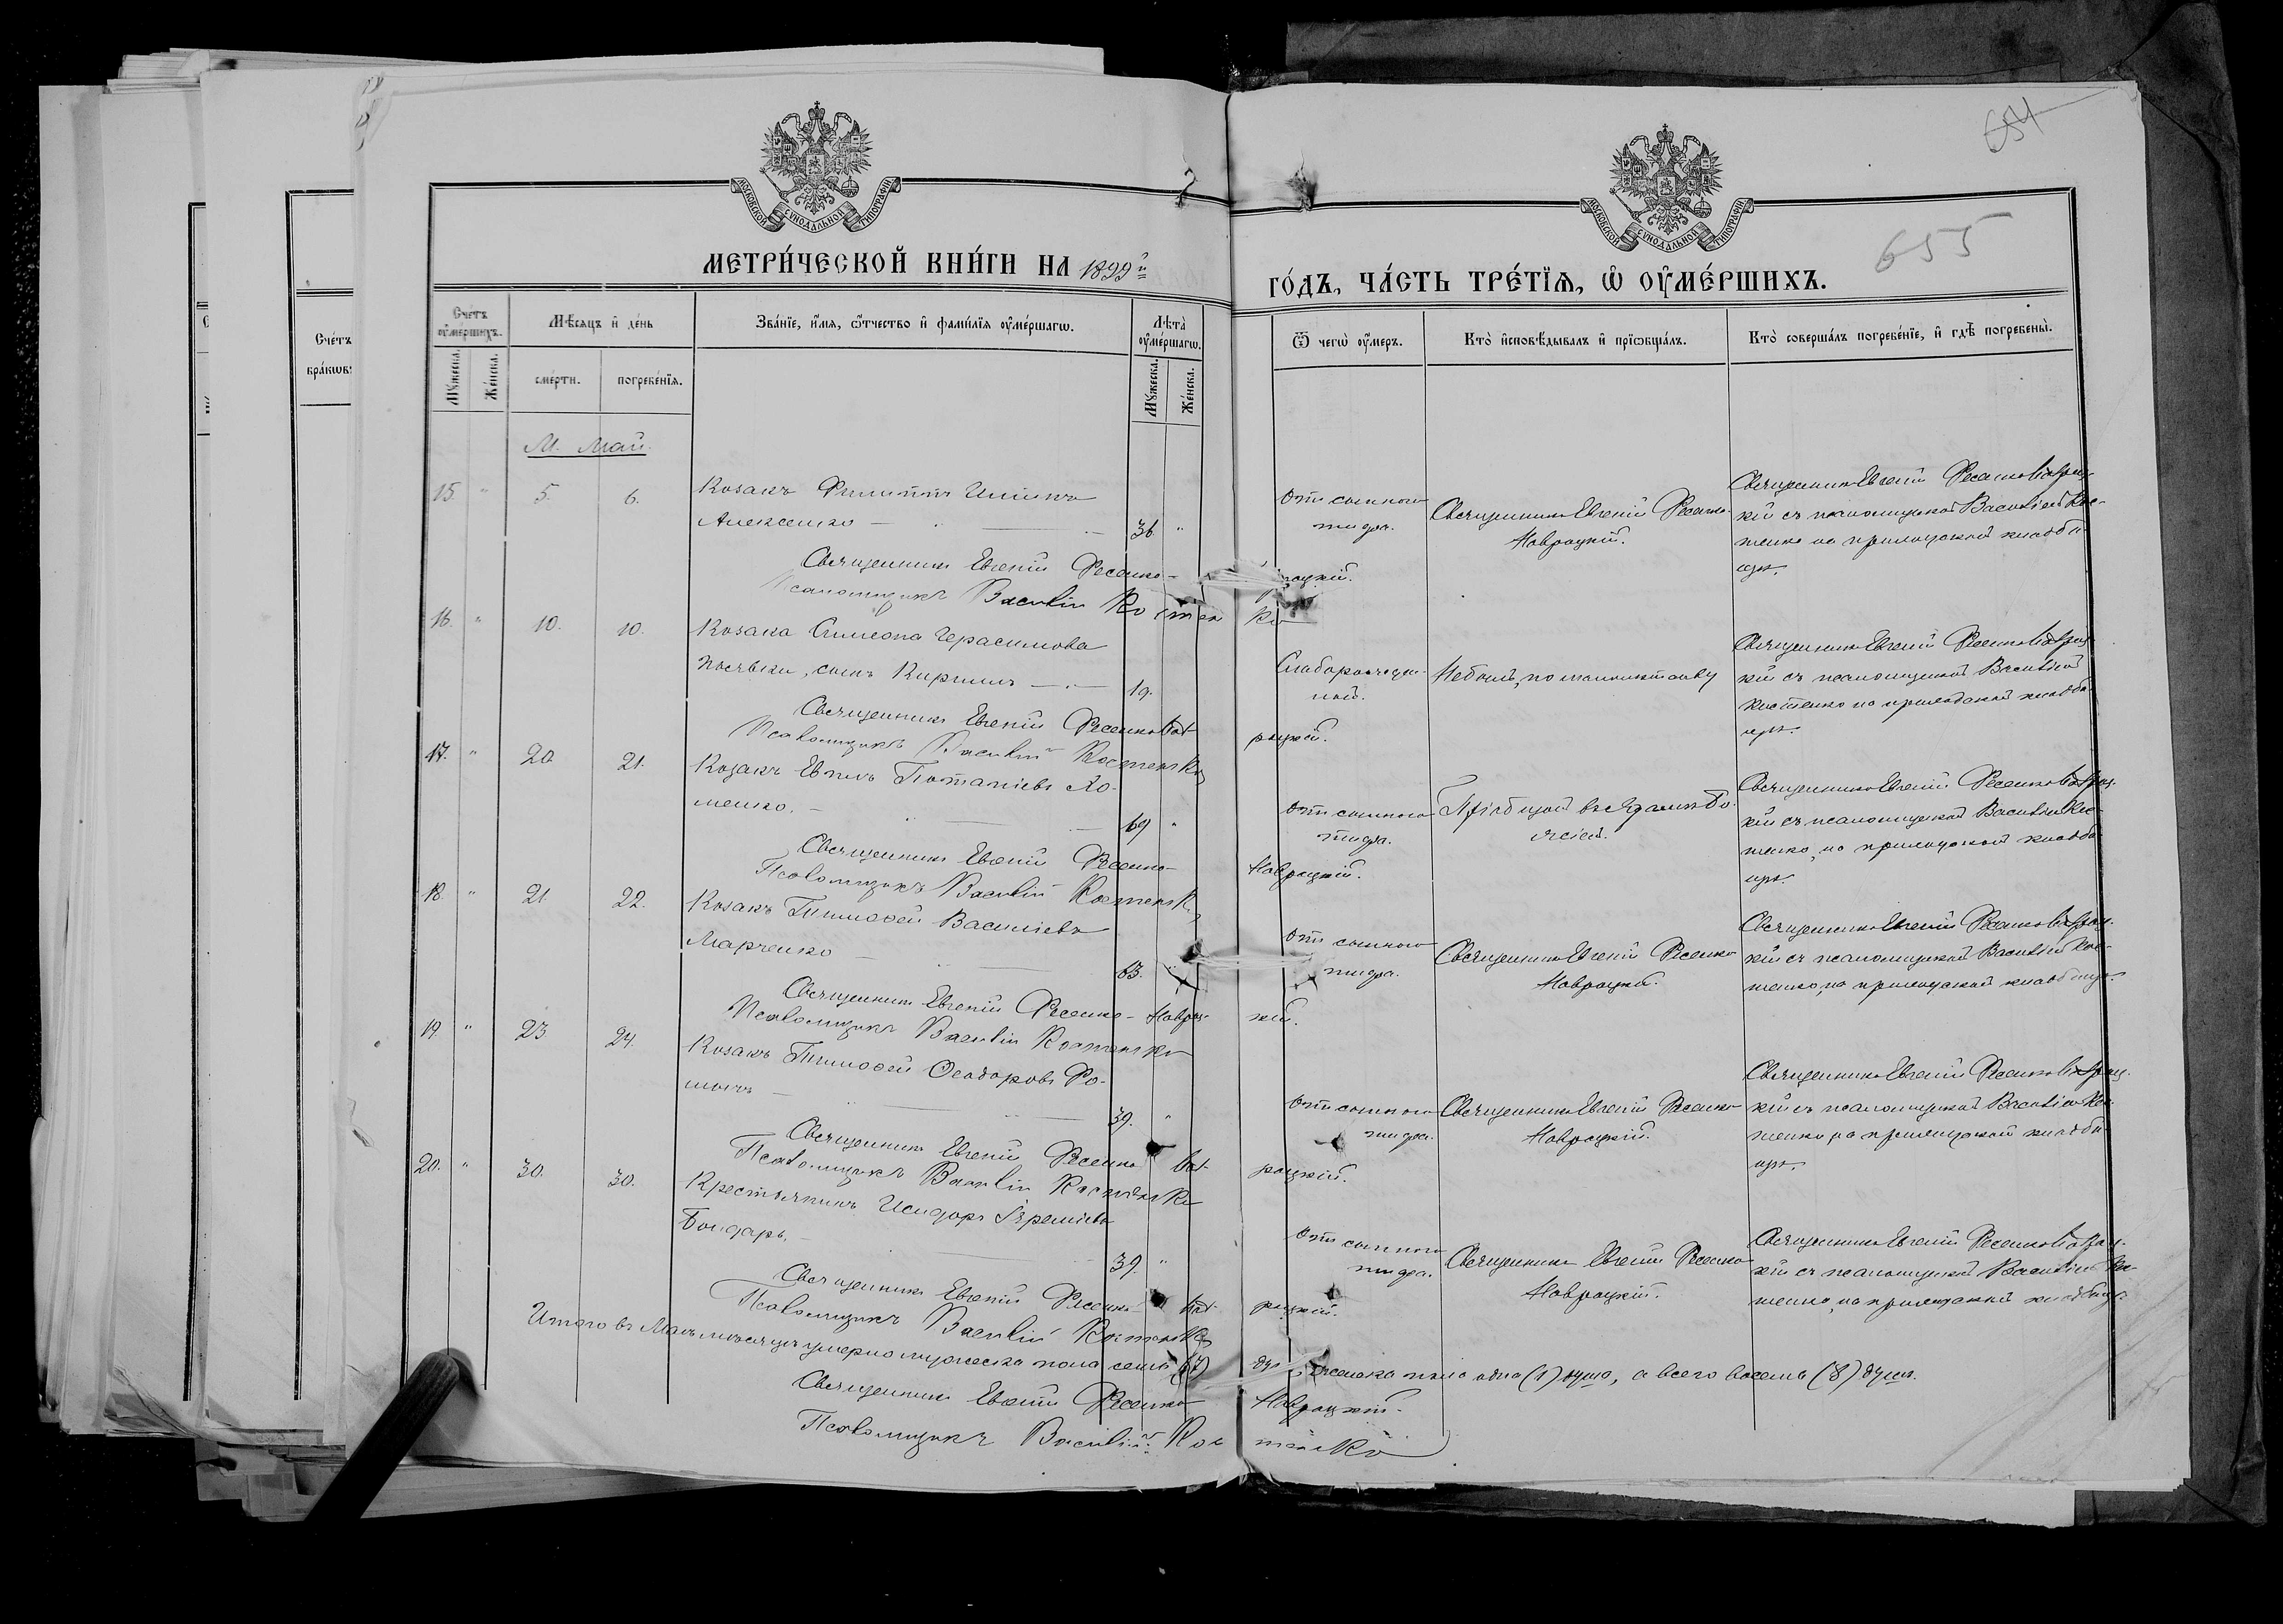 654
655
МОСКОВСКОЙ СУНОДАЛЬНОЙ ТИПОГРАФІИ
МОСКОВСКОЙ СУНОДАЛЬНОЙ ТИПОГРАФІИ
МЕТРИ́ЧЕСКОЙ КНИ́ГИ НА 1899й
ГО́ДЪ, ЧА́СТЬ ТРЕ́ТЇѦ, Ѡ҆ ОУ҆МЕ́РШИХЪ.
Сче́тъ оу҆ме́ршихъ.
Мѣсѧцъ и҆ де́нь
Зва́нїе, и҆́мѧ, ѻ҆́тчество и҆ фами́лїѧ оу҆ме́ршагѡ.
Лѣта̀ оу҆ме́ршагѡ.
Ѿ чегѡ̀ оу҆́меръ.
Кто̀ и҆сповѣ́дывалъ и҆ прїѡбща́лъ.
Кто̀ соверша́лъ погребе́нїе, и҆ гдѣ̀ погребены̀.
Мꙋ́жеска.
Же́нска.
сме́рти.
погребе́нїѧ.
Мꙋ́жеска.
Же́нска.
Сче́тъ
бра́кѡвъ
М. Май.
15. " 5. 6. Козакъ Филиппъ
Алексенко — 36 "
Отъ сыпного тифа.
Священникъ Евгеній Фесенко-
Навроцкій.
Священникъ Евгеній Фесенко-Навроц-
кій съ псаломщикомъ Василіемъ Кос-
тенко на приходскомъ кладби-
щѣ.
Священникъ Евгеній Фесенко-
роцкій.
Псаломщикъ Василій Костенко
16. " 10. 10. Козака Симеона Герасимова
сынъ Кириллъ — 1д.
Слаборожден-
ной.
Не былъ, по малолѣтству
Священникъ Евгеній Фесенко-Навроц-
кій съ псаломщикомъ Василіемъ
Костенко на приходскомъ кладби-
щѣ.
Священникъ Евгеній Фесенко-Навроцкій.
Псаломщикъ Василій Костенко
17. " 20 21. Козакъ Потапіевъ Хо-
менко. — 69 "
Отъ сыпного тифа.
Священникъ Евгеній Фесенко-Навроц-
кій съ псаломщикомъ Василіемъ Кос-
тенко, на приходскомъ кладби-
щѣ.
Священникъ Евгеній Фесенко-Навроцкій.
Псаломщикъ Василій Костенко
18. " 21. 22. Козакъ Тимофей Василіевъ
Марченко — 63. "
Отъ сыпного тифа.
Священникъ Евгеній Фесенко
Навроцкій.
Священникъ Евгеній Фесенко-Навроц-
кій съ псаломщикомъ Василіемъ Кос-
тенко, на приходскомъ кладбищѣ.
Священникъ Евгеній Фесенко-Навроцкій.
Псаломщикъ Василій Костенко
19. " 23. 24. Козакъ Тимофей Ѳеодоровъ
— 39. "
Отъ сыпного тифа.
Священникъ Евгеній Фесенко
Навроцкій.
Священникъ Евгеній Фесенко-Навроц-
кій съ псаломщикомъ Василіемъ Кос-
тенко на приходскомъ кладби-
щѣ.
Священникъ Евгеній Фесенко Навроцкій.
Псаломщикъ Василій Костенко
20. " 30. 30. Крестьянинъ Исидоръ Іереміевъ
Бондарь. — 39. "
Отъ сыпного тифа.
Священникъ Евгеній Фесенко
Навроцкій.
Священникъ Евгеній Фесенко-Навроц-
кій съ псаломщикомъ Василіемъ Кос-
тенко, на приходскомъ кладбищѣ.
Священникъ Евгеній Фесенко Навроцкій.
Псаломщикъ Василій Костенко
Итого въ Маѣ мѣсяцѣ умерло мужеска пола семь (7) душъ, женска пола одна (1) душа, а всего восемь (8) душъ.
Священникъ Евгеній Фесенко Навроцкій.
Псаломщикъ Василій Костенко